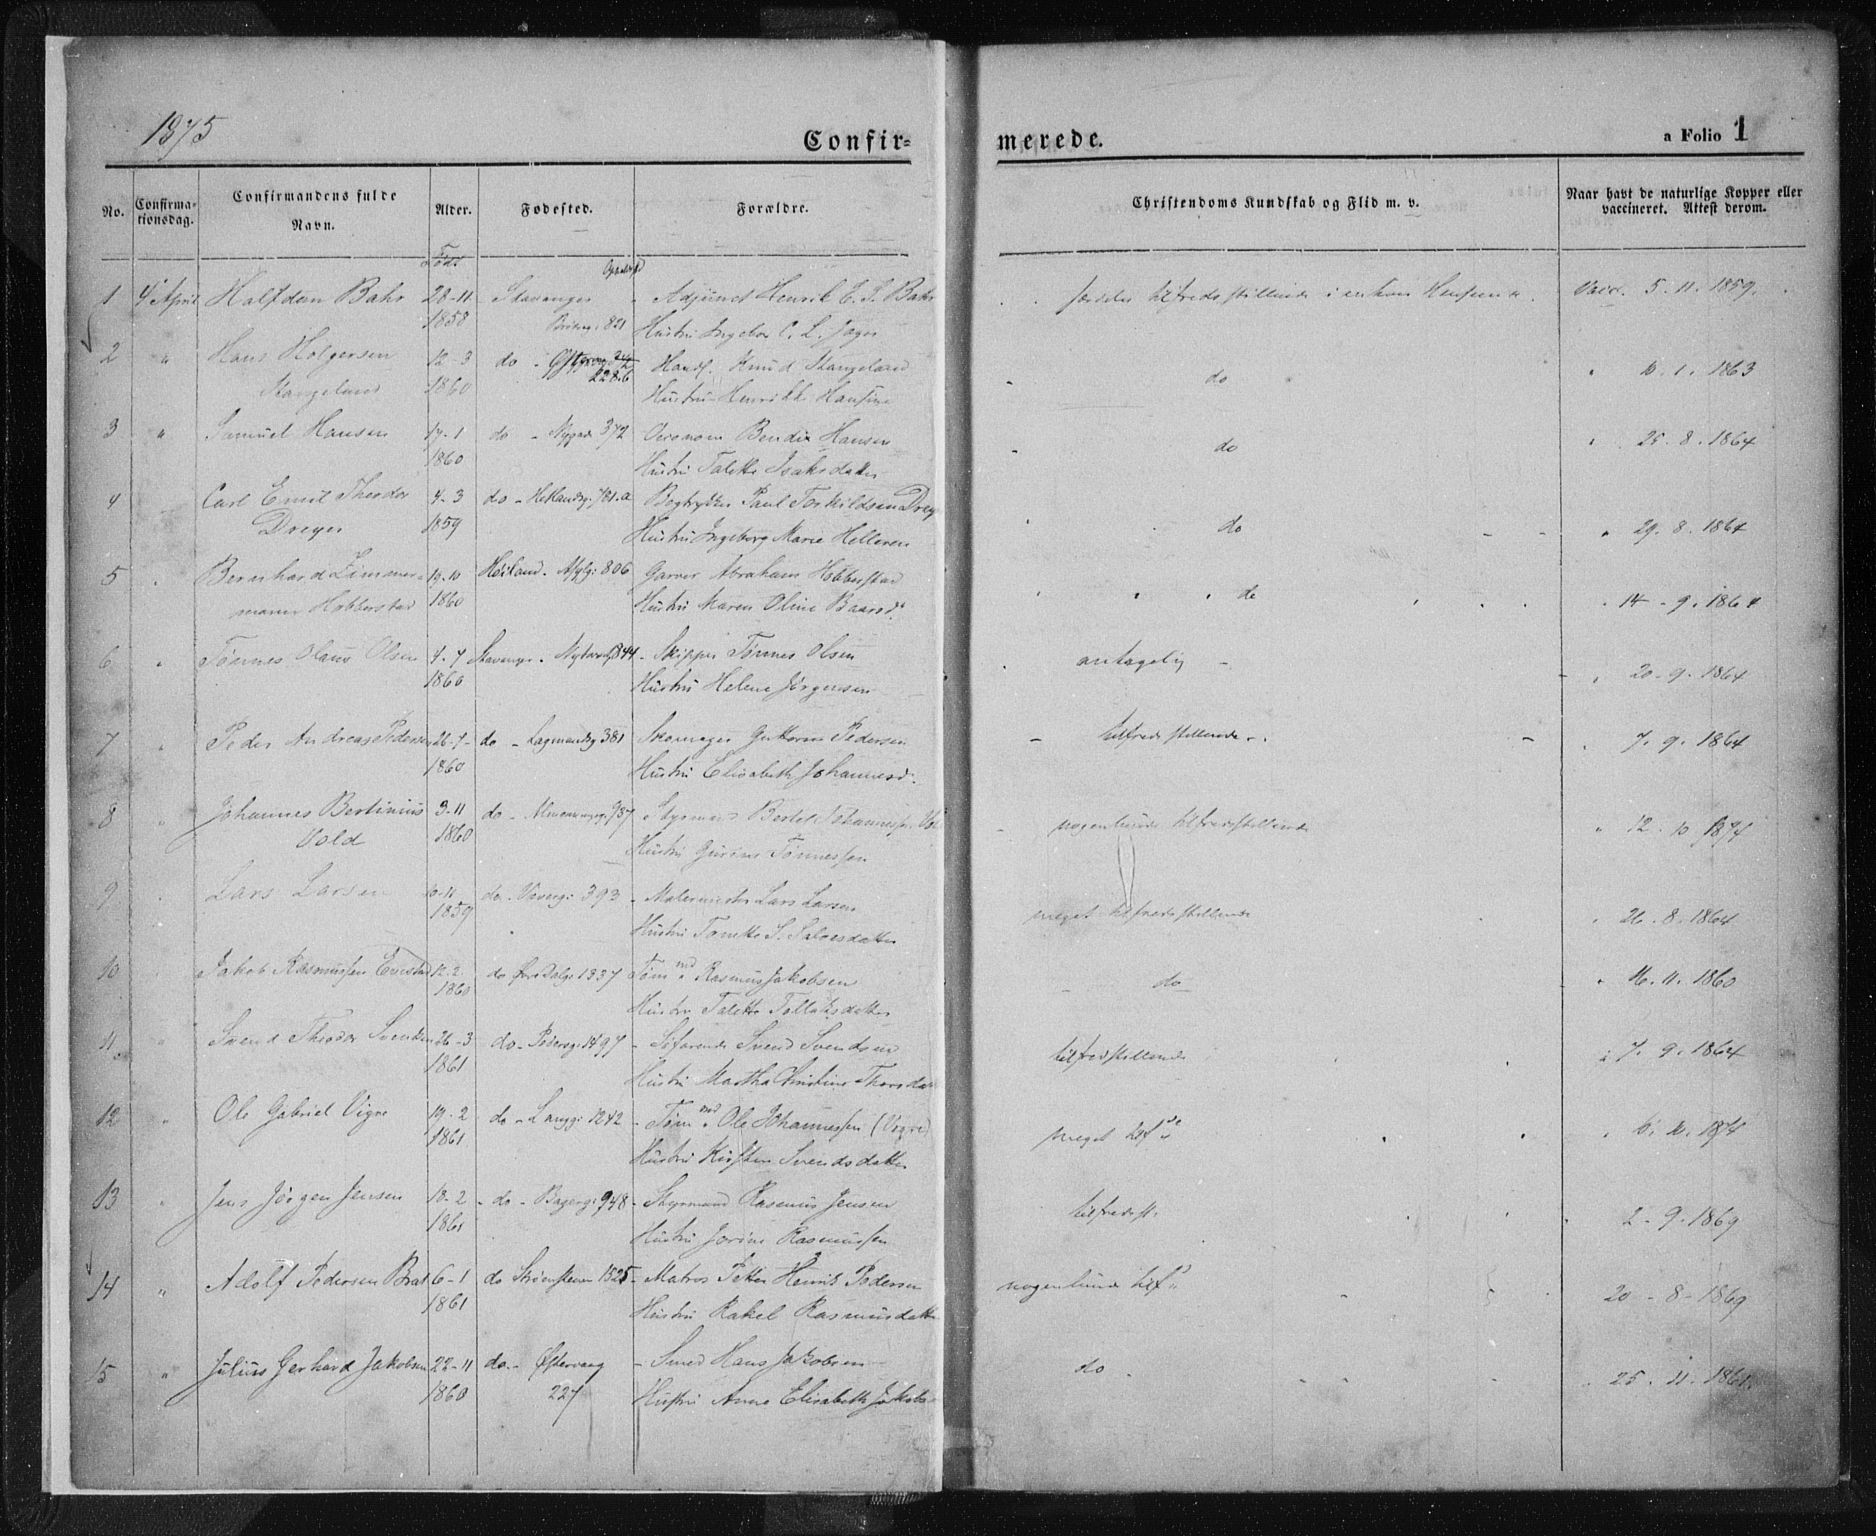 1875
Confir=
merede.
a Folio 1
No.
Confirma-
tionsdag.
Confirmandens fulde
Navn.
Alder.
Fødested.
Forældre.
Christendoms Kundskab og Flid m. v.
Naar havt de naturlige Kopper eller
vaccineret. Attest derom.
Født
1 4 April Halfdan Bahr 28-11 Stavanger - Adjunct Henrik E. S. Bahr
særdeles tilfredsstillende i enhver Henseende. Vacc. 5. 11. 1859.
1858 821 Hustru Ingebor C. L. Jager
2 " Hans Holgersen 12-3 do - Handl. Knud Stangeland
do " 10. 1. 1863
Stangeland 1860 228.b Hustru Henrikke Hansine
3 " Samuel Hansen 17-1 do - Nygade 372 Oeconom Bendix Hansen
do " 25. 8. 1864
1860 Hustru Talette Isaksdatter
4 Carl Emil Theodor 4-3 do - Hetlandsg. 781.a Bogtrykker Paul Torkildsen Drey
do " 29. 8. 1864
Dreyer 1859 Hustru Ingeborg Marie Helleren
5 " Bernhard Zimmer= 19-10 Høiland - 806 Garver Abraham Hobberstad
do " 14-9. 1864
mann Hobberstad 1860 Hustru Maren Oline Baarsd.
6 " Tønnes Olaus Olsen 4-7 Stavanger - 844 - Skipper Tønnes Olsen
antagelig - " 20-9. 1864
1860 Hustru Helene Jørgensen
7 " Peder Andreas Pedersen 26-7- do - Lagmandsg. 381 Skomager Guttorm Pedersen
tilfredsstillende - " 7. 9. 1864
1860 Hustru Elisabeth Johannesd.
8 " Johannes Bertinius 3-11 do - 987 Styrmand Bertel Johannessen
nogenlunde tilfredsstillende " 12. 10 1874
Vold 1860 Hustru Gurine Tønnessen
9 " Lars Larsen 10-11 do - 393 - Malermester Lars Larsen
meget tilfredsstillende " 26. 8. 1864
1859 Hustru Tonette S. Salvesdatter
10 Jakob Rasmussen 12-2 do 1337 Tømmd. Rasmus Jakobsen
do " 16. 11. 1860
1860 Hustru Talette Tollaksdatter
11 " Svend Theodor Svendsen 26-3 do - Pedersg. 1497 - Søfarende Svend Svendsen
tilfredsstillende " 7. 9. 1864
1861 Hustru Martha Christine Thorsdat
12 " Ole Gabriel Vigre 19-2 do - Langg. 1242 - Tømmd. Ole Johannessen (Vigre)
meget tilf.de " 10. 1874
1861 Hustru Kirsten Svendsdatter
13 " Jens Jørgen Jensen 18-2 - do - Bagerg. 948 - Styrmand Rasmus Jensen
tilfredsst. 2-9. 1869
1861 Hustru Jorine Rasmussen
14 " Adolf Pedersen 6-1 do Strømsteen 1525 - Matros Petter Henrik Pedersen
nogenlunde tilf. 20-8-1869
1861 Hustru Rakel Rasmusdatter
15 " Julius Gerhard Jakobsen 22-11 do - Østervaag - Smed Hans Jakobsen
do " 25. 11. 1861.
1860 227 Hustru Anne Elisabeth Jakobs